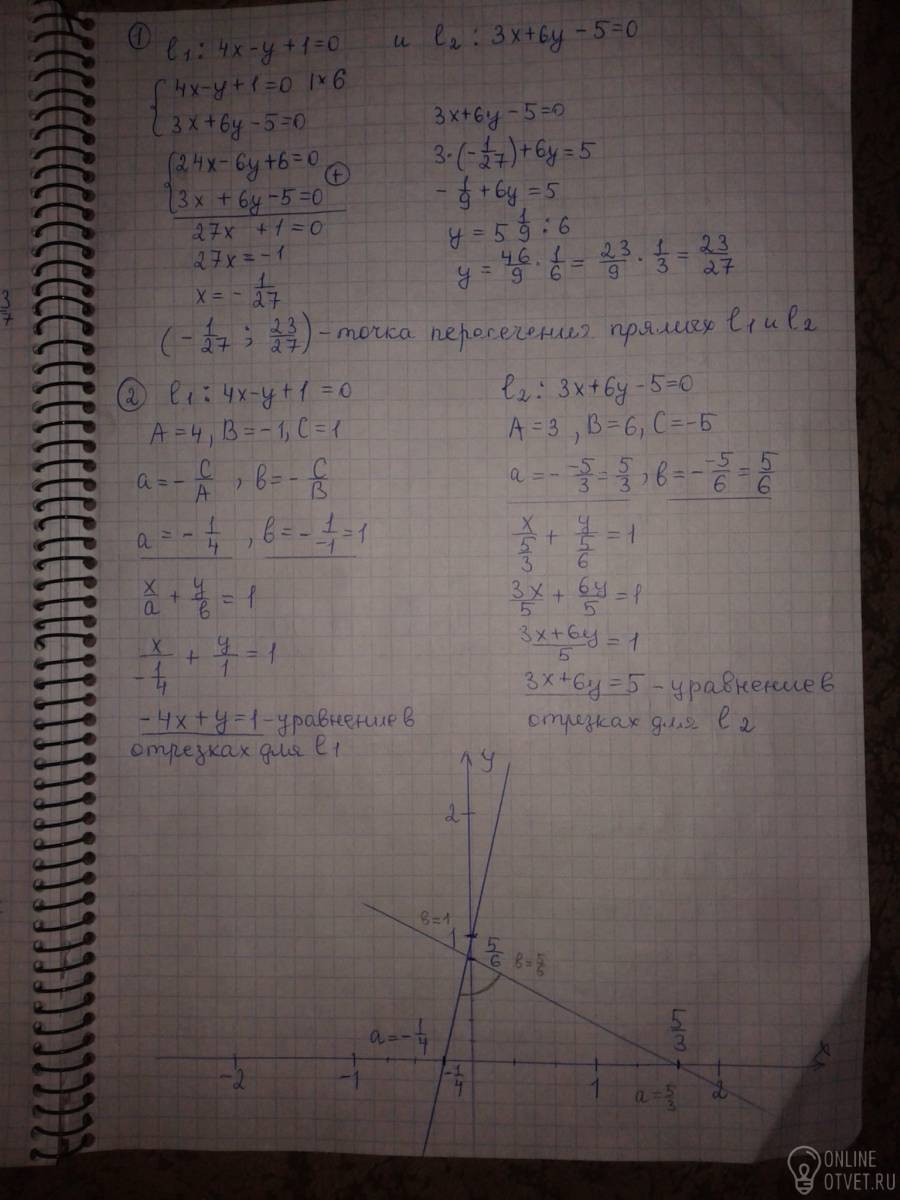 ① l₁: 4x-y+1=0 и l₂: 3x+6y-5=0
4x-y+1=0 |×6
3x+6y-5=0
24x-6y+6=0
3x+6y-5=0 (+)
27x+1=0
27x=-1
x=-1/27
3x+6y-5=0
3·(-1/27)+6y=5
-1/9+6y=5
y=5 1/9:6
y=46/9·1/6=23/9·1/3=23/27
(-1/27; 23/27)-точка пересечения прямых l₁ и l₂
② l₁: 4x-y+1=0
A=4, B=-1, C=1
a=-C/A, в=-C/B
a=-1/4, в=-1/-1=1
x/a+y/в=1
x/-1/4+y/1=1
-4x+y=1-уравнение в
отрезках для l1
l₂: 3x+6y-5=0
A=3, B=6, C=-5
a=--5/3=5/3, в=--5/6=5/6
x/5/3+y/5/6=1
3x/5+6y/5=1
3x+6y/5=1
3x+6y=5-уравнение в
отрезках для l2
y
2
в=1
1
5/6
в=5/6
a=-1/4
5/3
x
-2
-1
-1/4
1
2
a=5/3
3/7
ONLINE
OTVET.RU